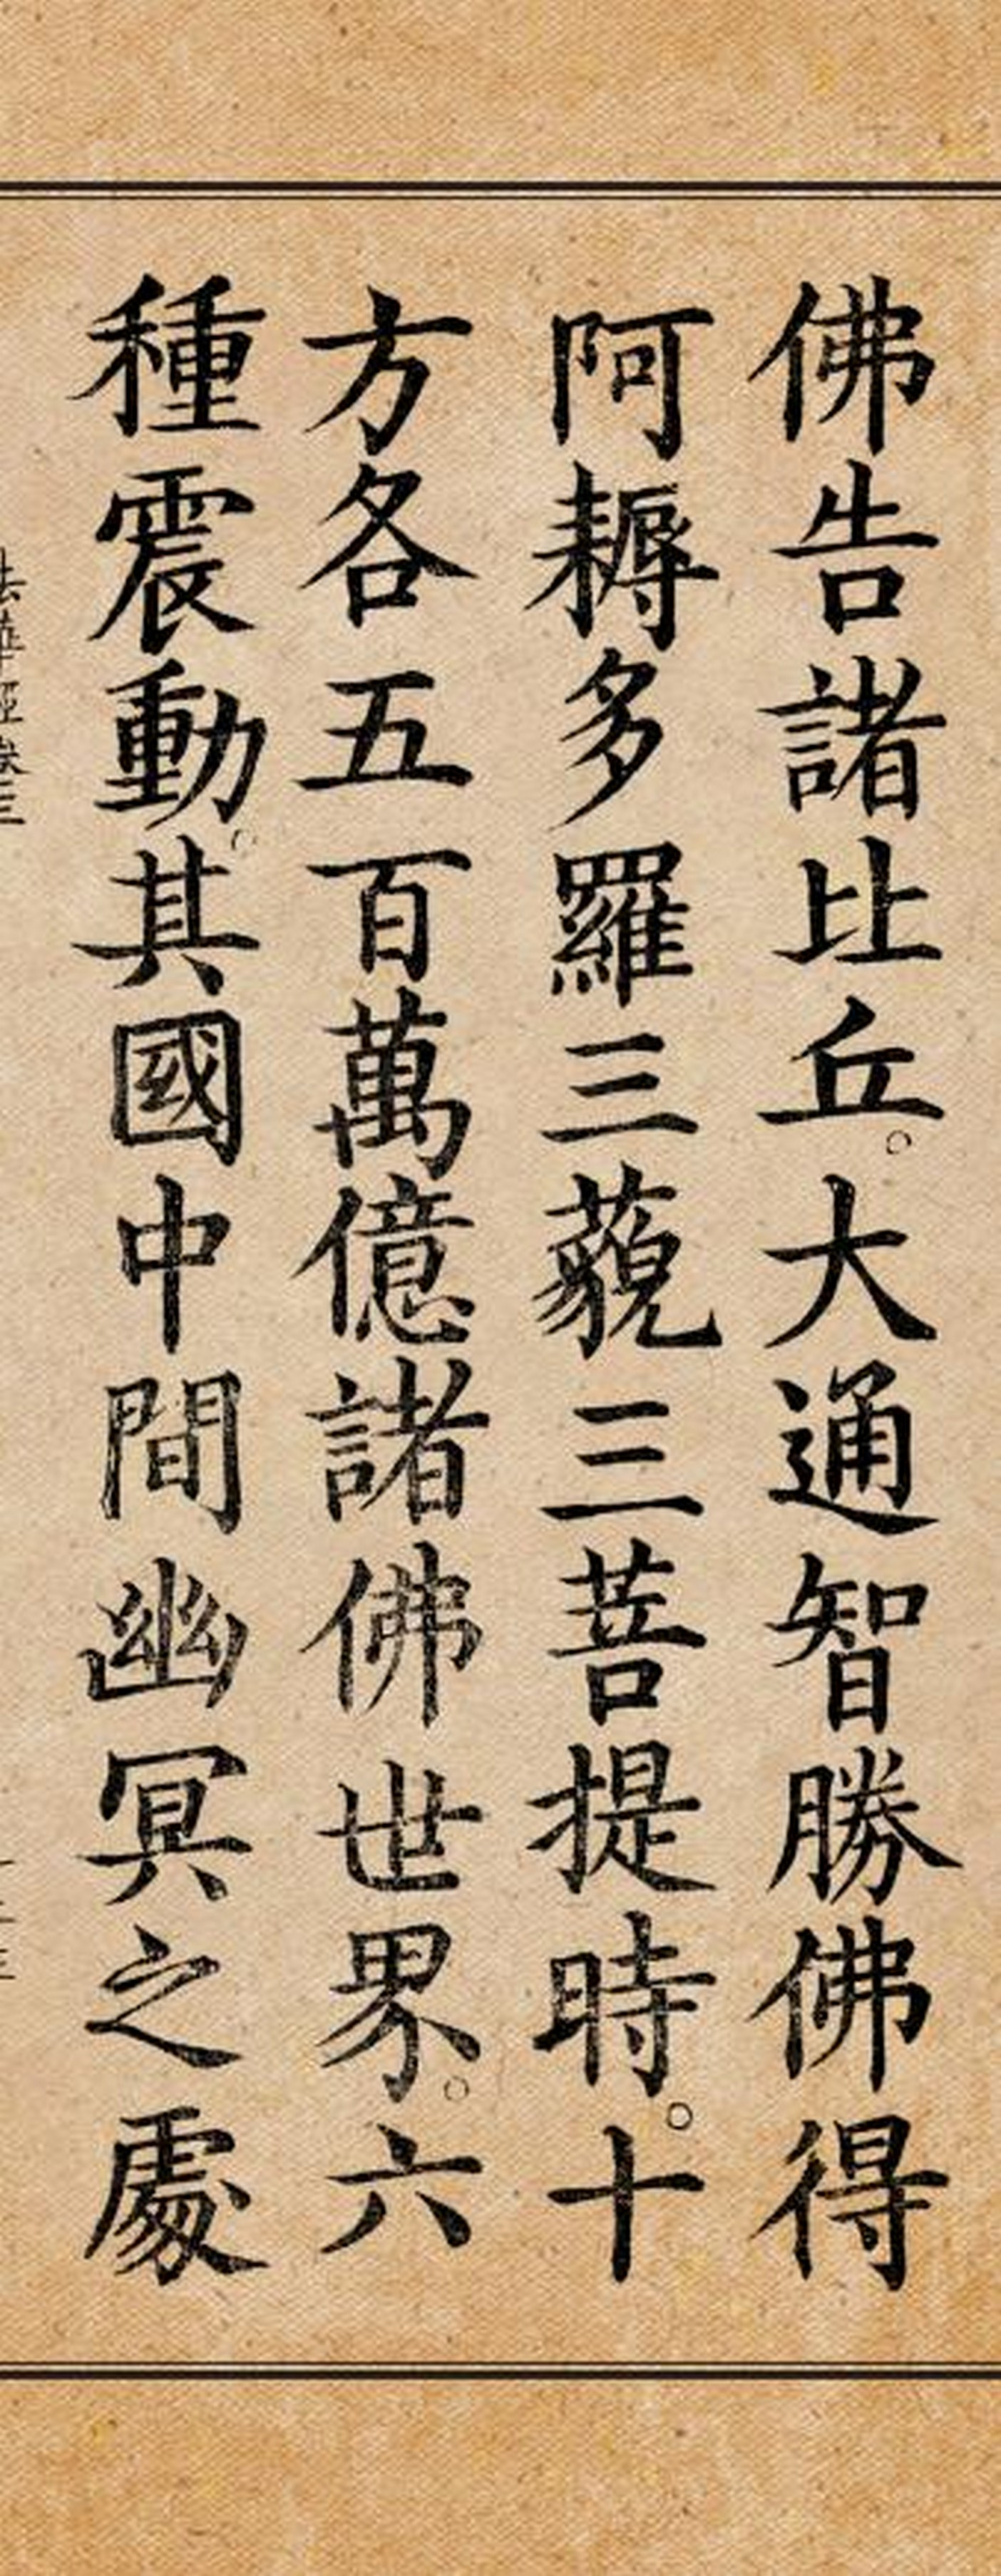 佛告諸比丘。大通智勝佛得
阿耨多羅三藐三菩提時。十
方各五百萬億諸佛世界。六
種震動。其國中間幽冥之處
法華經卷三